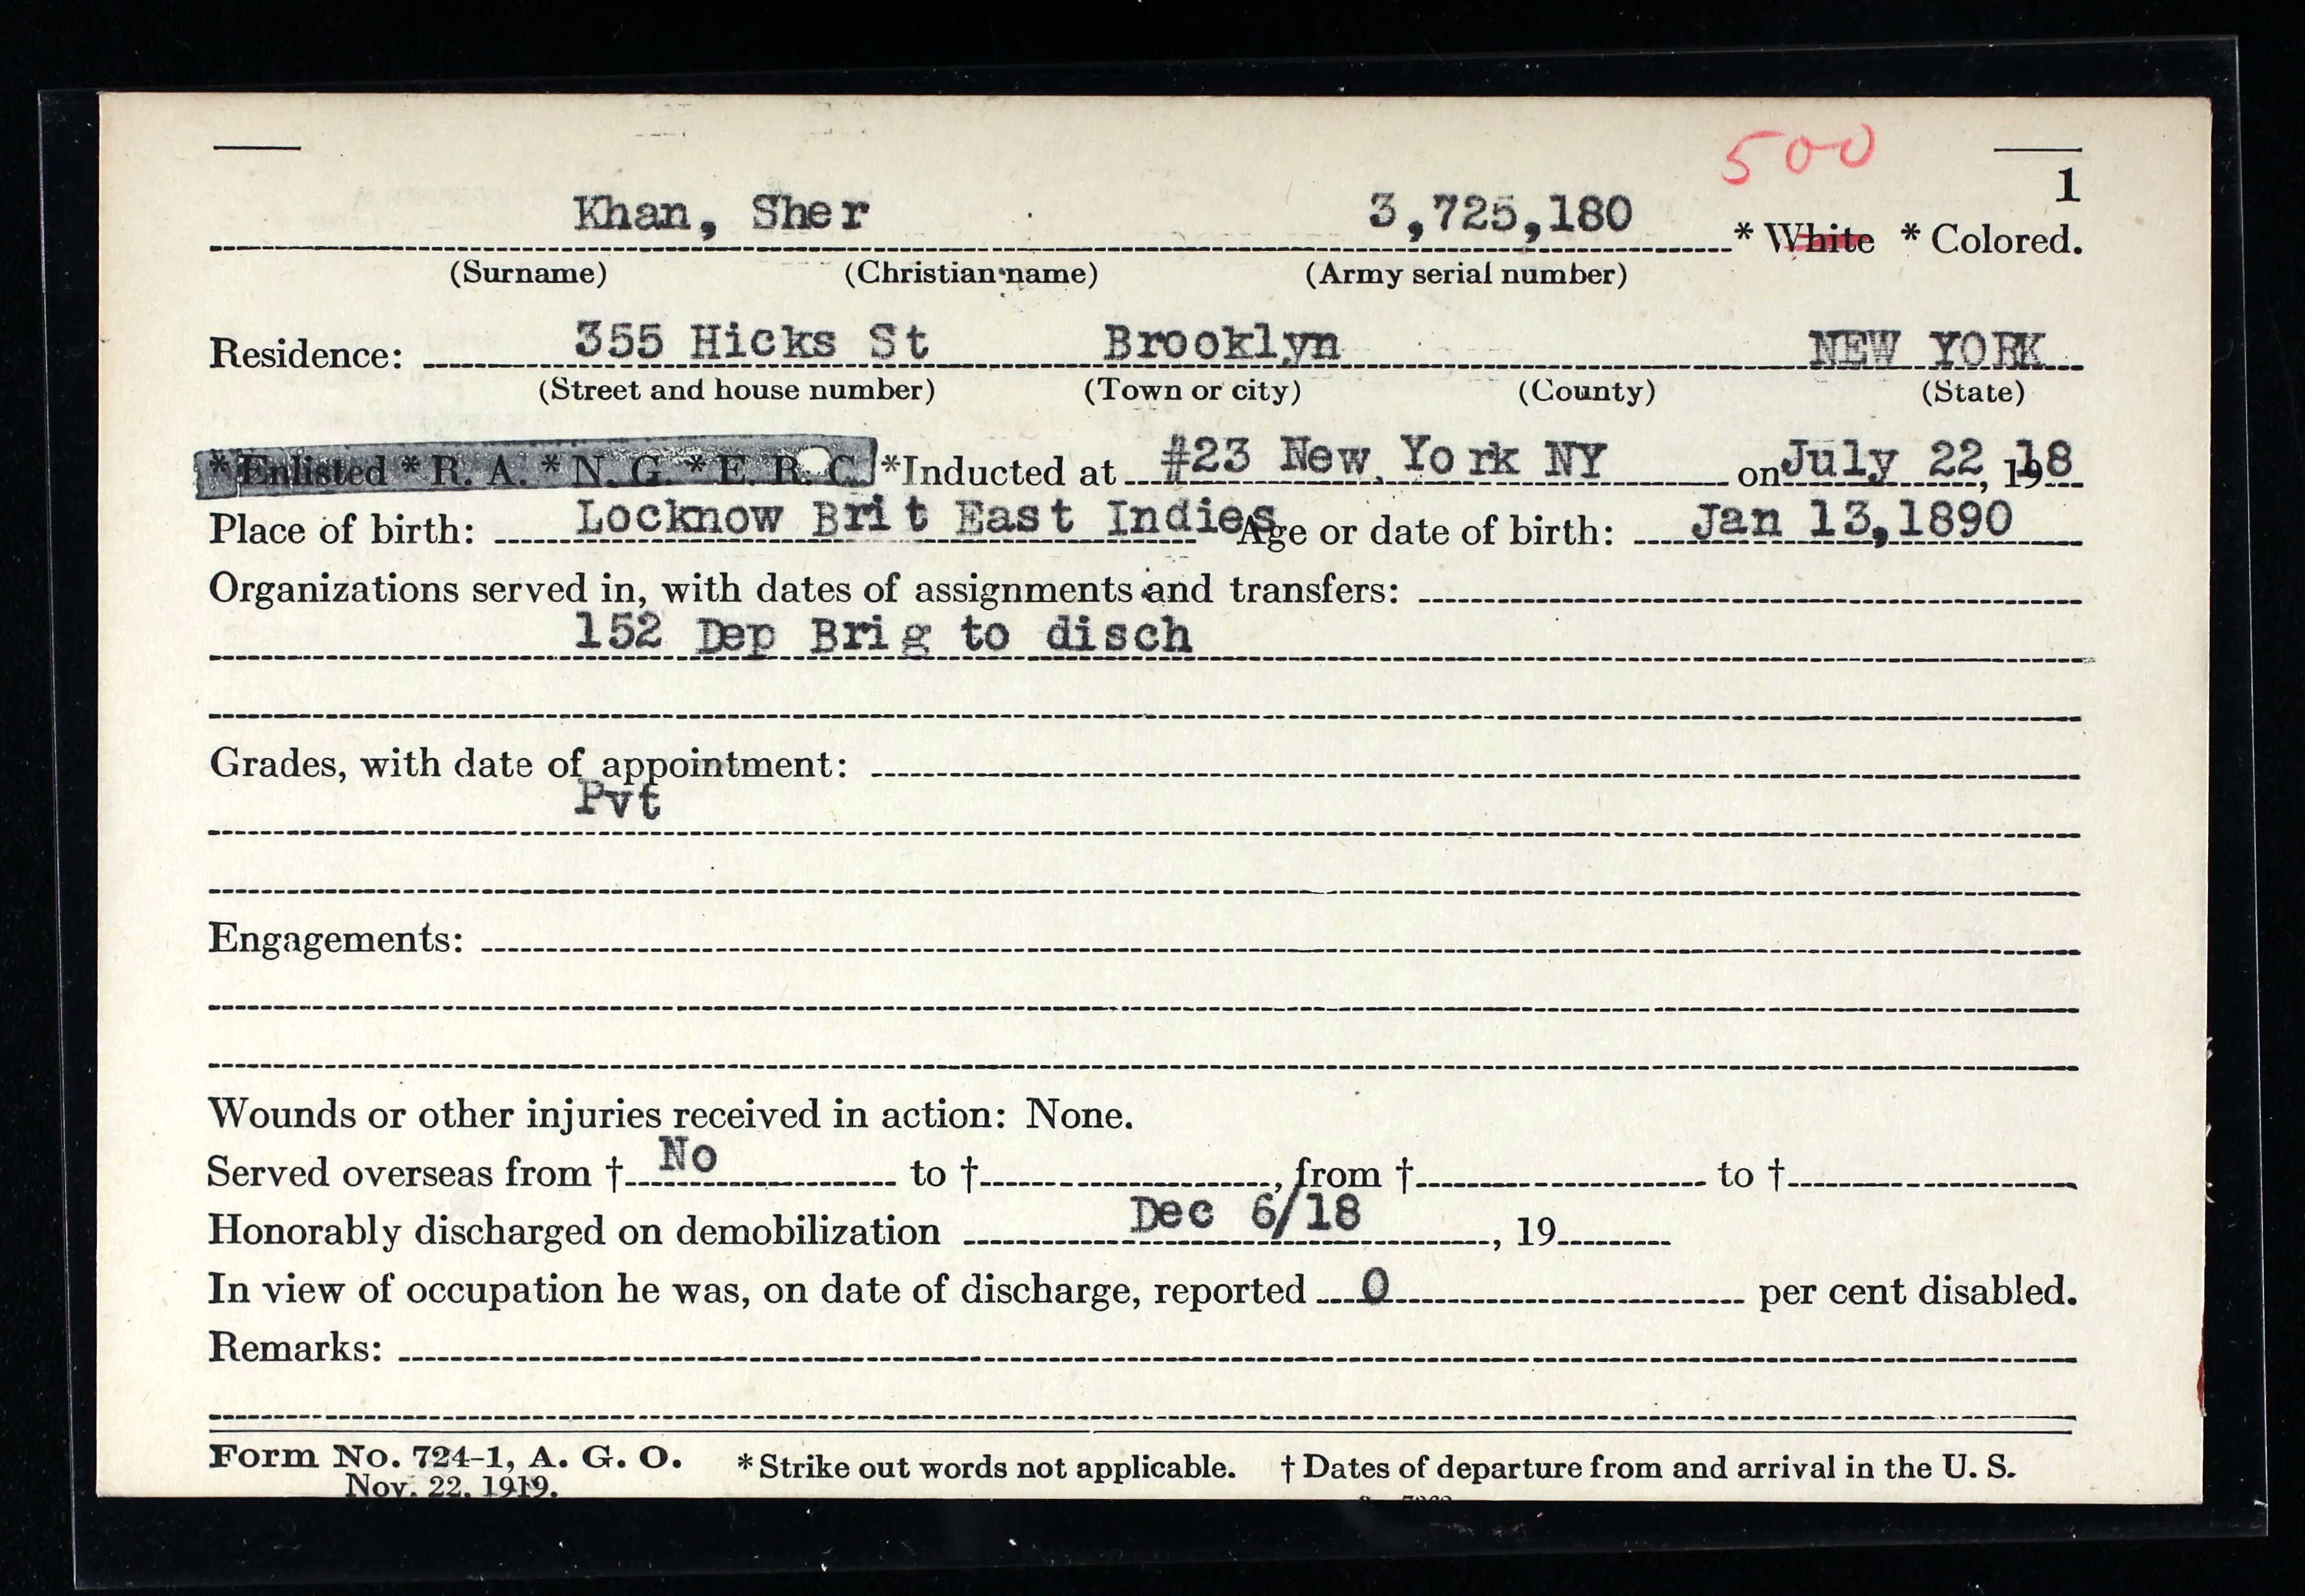 500
1
Khan, Sher 3,725,180 * White * Colored.
(Surname) (Christian name) (Army serial number)
Residence: 355 Hicks St Brooklyn NEW YORK
(Street and house number) (Town or city) (County) (State)
*Enlisted *R. A. *N. G. *E. R. C. *Inducted at #23 New York NY on July 22, 1918
Place of birth: Locknow Brit East Indies Age or date of birth: Jan 13,1890
Organizations served in, with dates of assignments and transfers:
152 Dep Brig to disch
Grades, with date of appointment:
Pvt
Engagements:
Wounds or other injuries received in action: None.
Served overseas from † No to † , from † to †
Honorably discharged on demobilization Dec 6/18 , 19
In view of occupation he was, on date of discharge, reported 0 per cent disabled.
Remarks:
Form No. 724-1, A. G. O. *Strike out words not applicable. † Dates of departure from and arrival in the U. S.
Nov. 22, 1919.